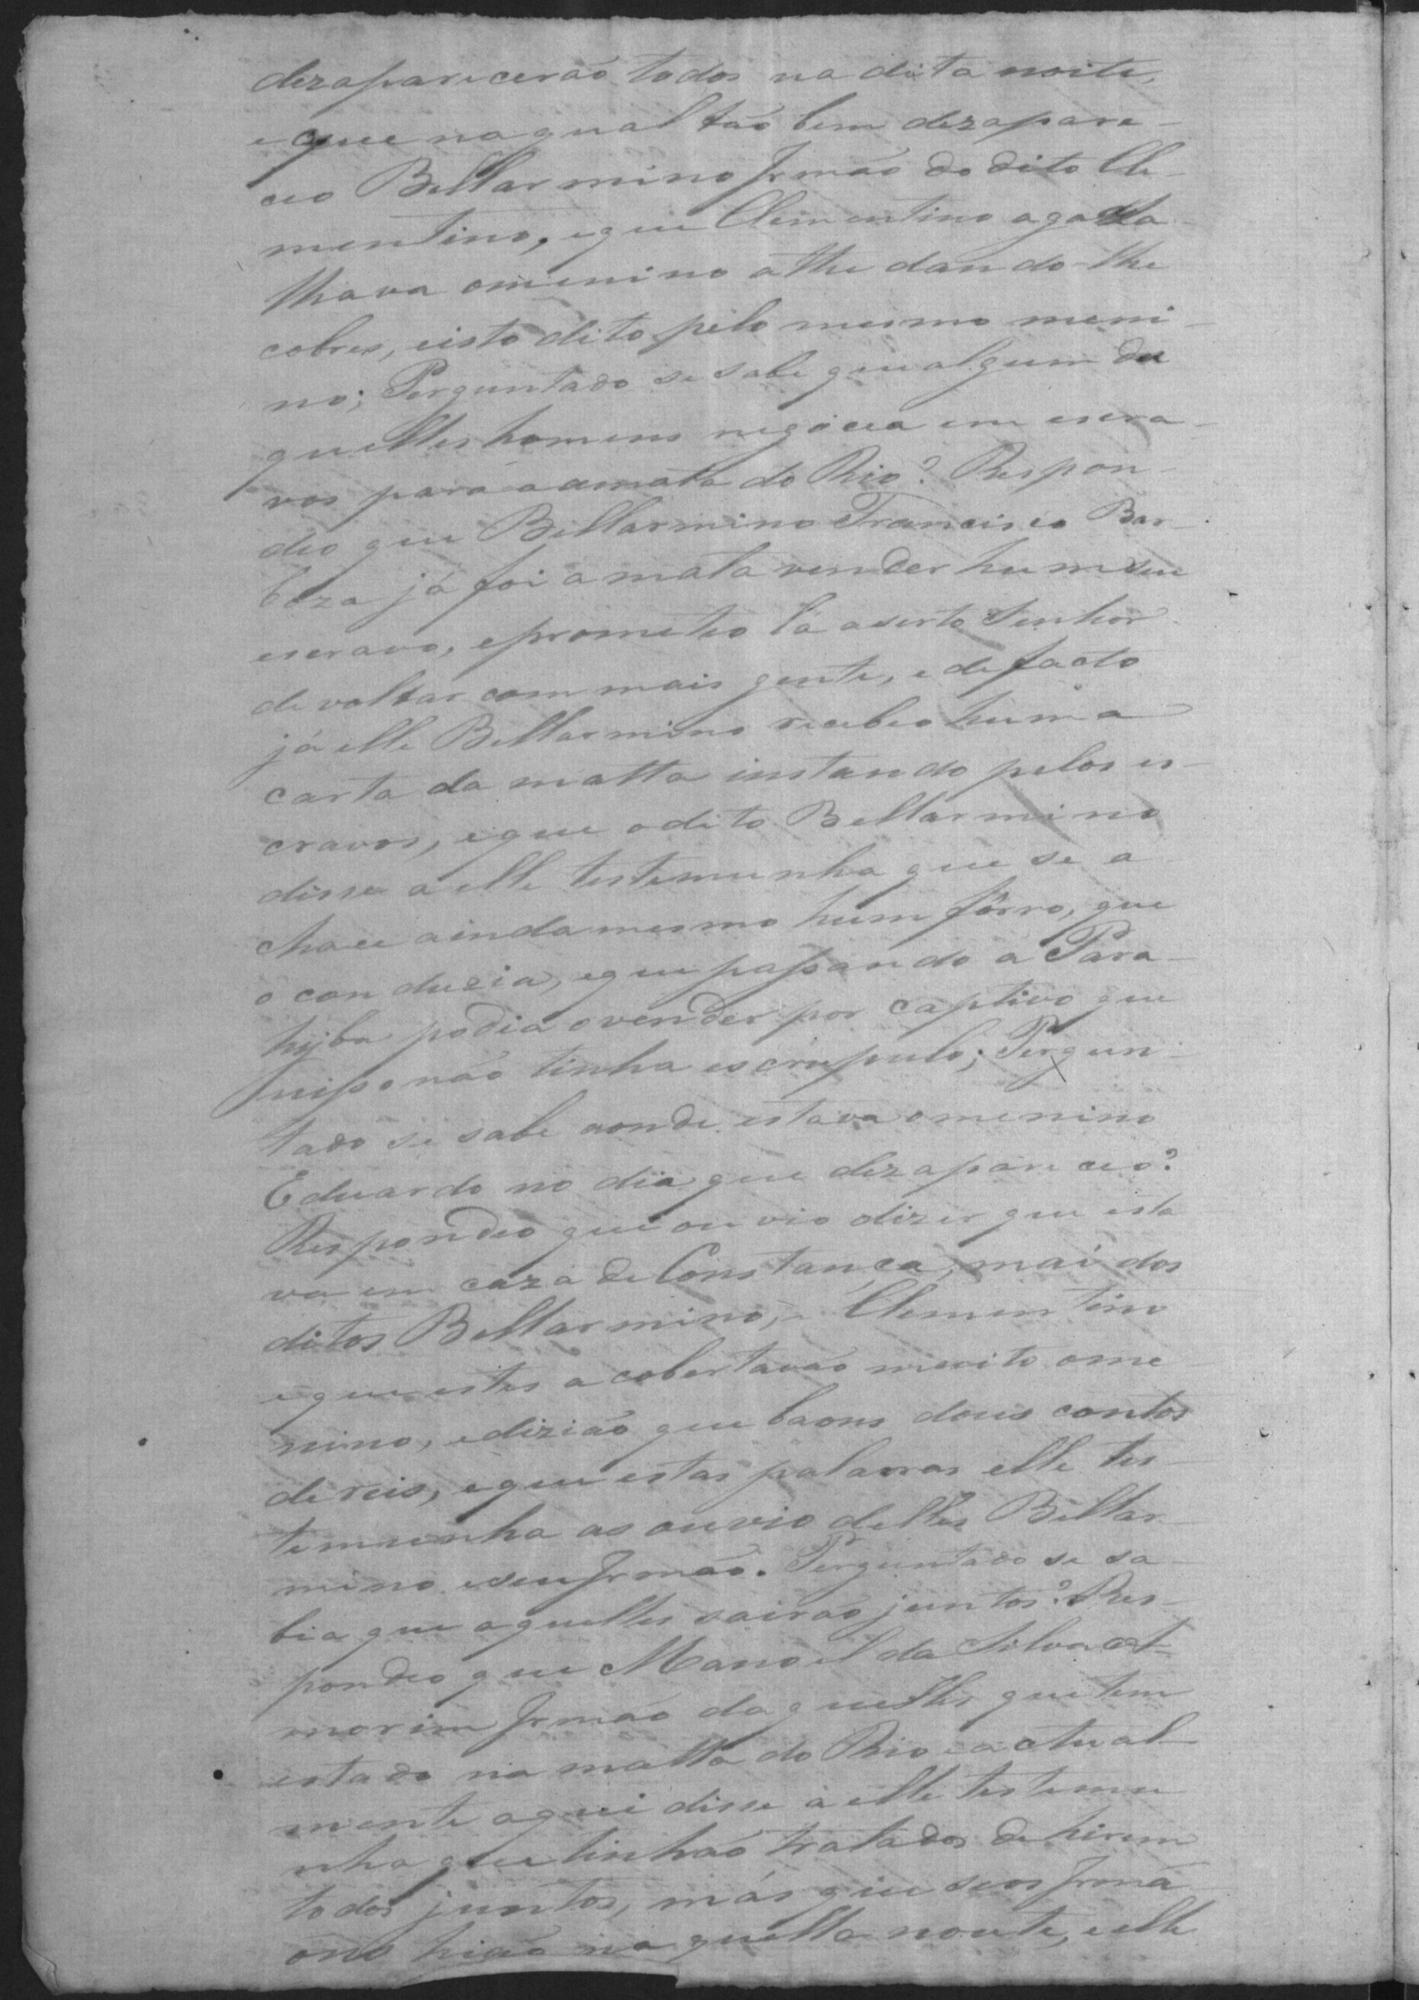 dezaparecerão todos na dita noite,
e que na qual tão bem dezapare-
ceo Bellarmino Irmão do dito Cle-
mentino, eque Clementino agaza-
lhava omenino athe dando-lhe
cobres, eisto dito pelo mesmo meni-
no; Perguntado se sabe que algum da
quelles homens negocea em escra-
vos para a amata do Rio? Respon-
deo que Bellarmino Francisco Bar-
boza já foi a mata vender hum seu
escravo, eprometeo lá a serto Senhor
de voltar com mais gente, e de facto
já elle Bellarmino recebeo huma
carta da matta instando pelos es-
cravos, eque odito Bellarmino
disse a elle testemunha que se a
chace ainda mesmo hum fôrro, que
o conduzia, eque passando a Para-
hyba podia ovender por captivo que
nisso não tinha escrupulo; Pergun-
tado se sabe aonde estava omenino
Eduardo no dia que dezapareceo?
Respondeo que ouvio dizer que esta
va em caza de Constança, mai dos
ditos Bellarmino, Clementino
eque estes acobertavão muito ome
nino, edizião que baons dous contos
de reis, eque estas palavras elle tes-
temunha as ouvio delles Bellar-
mino eseu Irmão. Perguntado se sa-
bia que aquelles sairão juntos? Res-
pondeo que Manoel da Silva A-
morim Irmão daquelles que tem
estado na matta do Rio eactual-
mente aqui disse a elle testemu
nha que tinhão tratados de hirem
todos juntos, más que seos Irmã
ons hião na quella noute, eelle